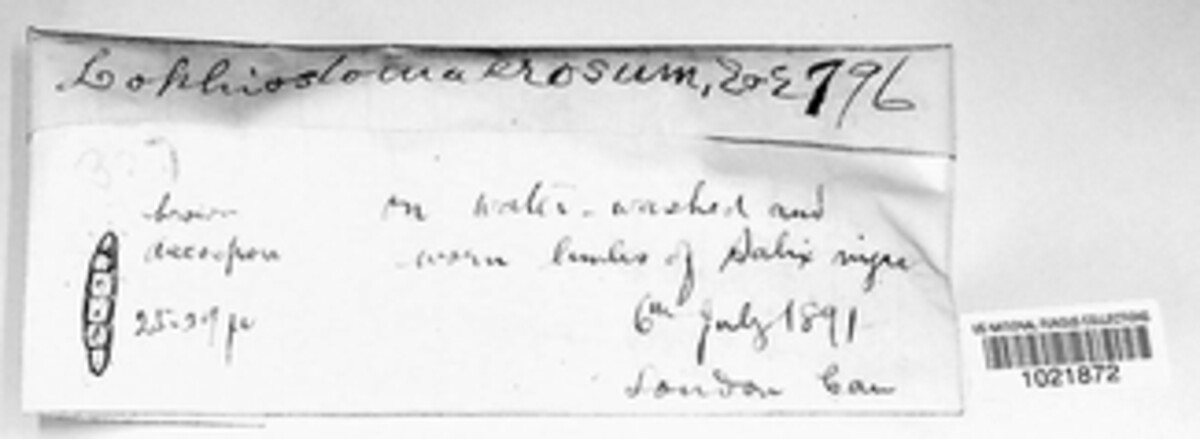 Lophiostoma erosum, E&E 796
brown
ascospore
25-39 µ
on water-washed and
worn limbs of Salix nigra
6th July 1891
London Can
US NATIONAL FUNGUS COLLECTIONS
1021872